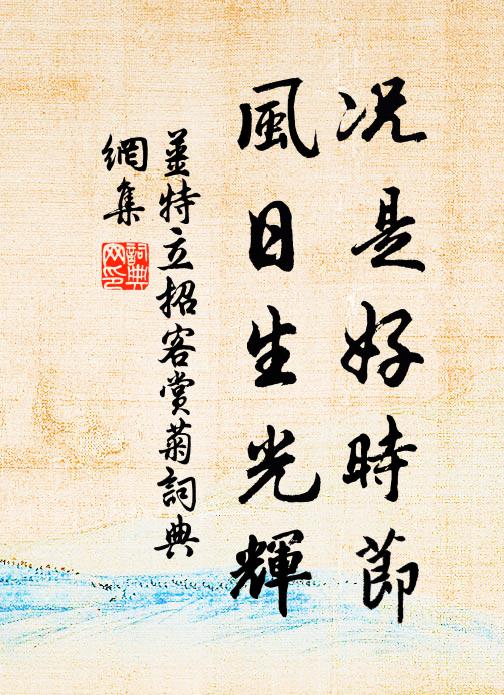 况是好時節
風日生光輝
姜特立招客賞菊詞典
網集
詞典
网印